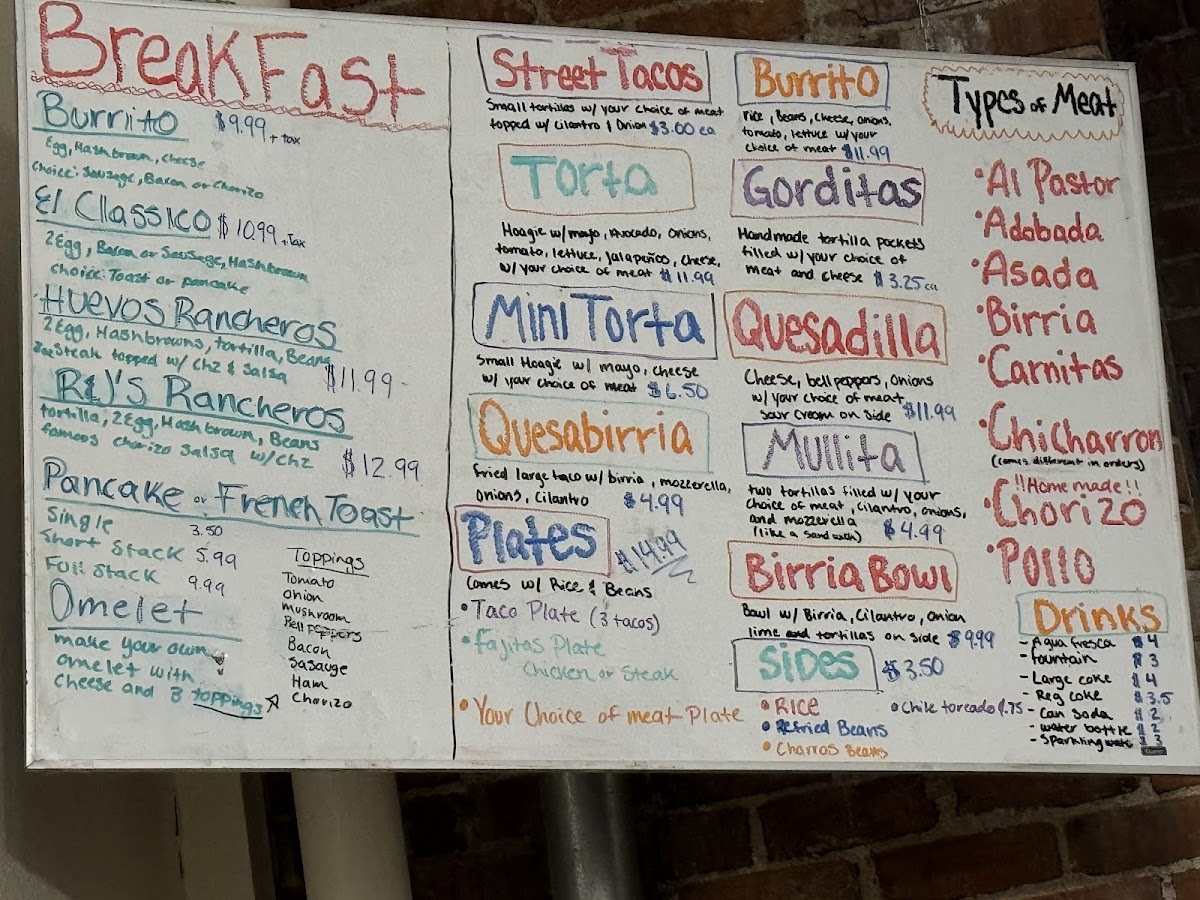 BreakFast
Burrito $9.99 + tax
Egg, Hashbrown, cheese
Choice: Sausage, Bacon or Chorizo
El Classico $10.99 + Tax
2 Egg, Bacon or Sausage, Hashbrown
choice: Toast or pancake
Huevos Rancheros
2 Egg, Hashbrowns, tortilla, Beans
Steak topped w/ chz & Salsa $11.99
R&J's Rancheros
tortilla, 2 Egg, Hashbrown, Beans
famous chorizo salsa w/chz $12.99
Pancake or French Toast
Single 3.50
Short Stack 5.99
Full Stack 9.99
Omelet
make your own
omelet with
cheese and 3 toppings
Toppings
Tomato
onion
mushroom
Bell peppers
Bacon
Sasauge
Ham
Chorizo
Street Tacos
Small tortillas w/ your choice of meat
topped w/ cilantro & Onion $3.00 ea
Torta
Hoagie w/ mayo, Avocado, onions,
tomato, lettuce, jalapeños, cheese,
w/ your choice of meat $11.99
Mini Torta
Small Hoagie w/ mayo, cheese
w/ your choice of meat $6.50
Quesabirria
fried large taco w/ birria, mozzerella,
onions, cilantro $4.99
Plates $14.99
Comes w/ Rice & Beans
• Taco Plate (3 tacos)
• Fajitas Plate
Chicken or Steak
• Your Choice of meat Plate
Burrito
rice, Beans, cheese, onions,
tomato, lettuce w/your
choice of meat $11.99
Gorditas
Handmade tortilla pockets
filled w/ your choice of
meat and cheese $3.25 ea
Quesadilla
Cheese, bell peppers, onions
w/ your choice of meat
sour cream on side $11.99
Mullita
two tortillas filled w/ your
choice of meat, cilantro, onions,
and mozzerella
(like a sandwich) $4.99
Birria Bowl
Bowl w/ Birria, Cilantro, onion
lime and tortillas on side $9.99
Sides $3.50
• Rice
• Refried Beans
• Charros Beans
• Chile toreado 1.75
Types of Meat
• Al Pastor
• Adobada
• Asada
• Birria
• Carnitas
• Chicharron
(comes different in orders)
!!Home made!!
• Chorizo
• Pollo
Drinks
- Agua fresca $4
- fountain $3
- Large coke $4
- Reg coke $3.5
- Can soda $2
- water bottle $2
- Sparkling water $3